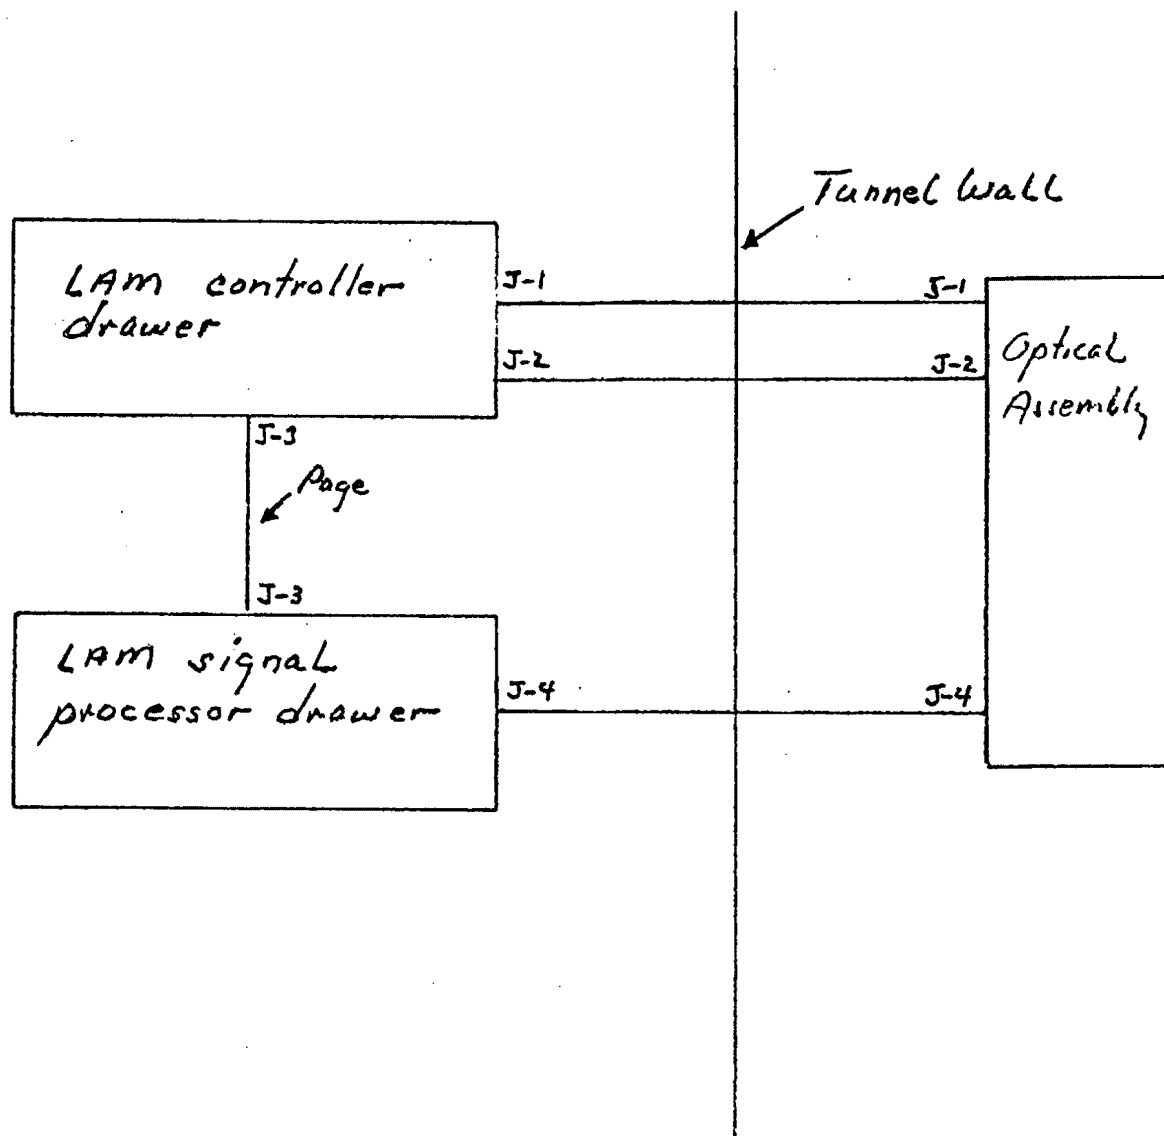 Tunnel Wall
LAM controller
drawer
J-1
J-1
J-2
J-2
Optical
Assembly
J-3
Page
J-3
LAM signal
processor drawer
J-4
J-4